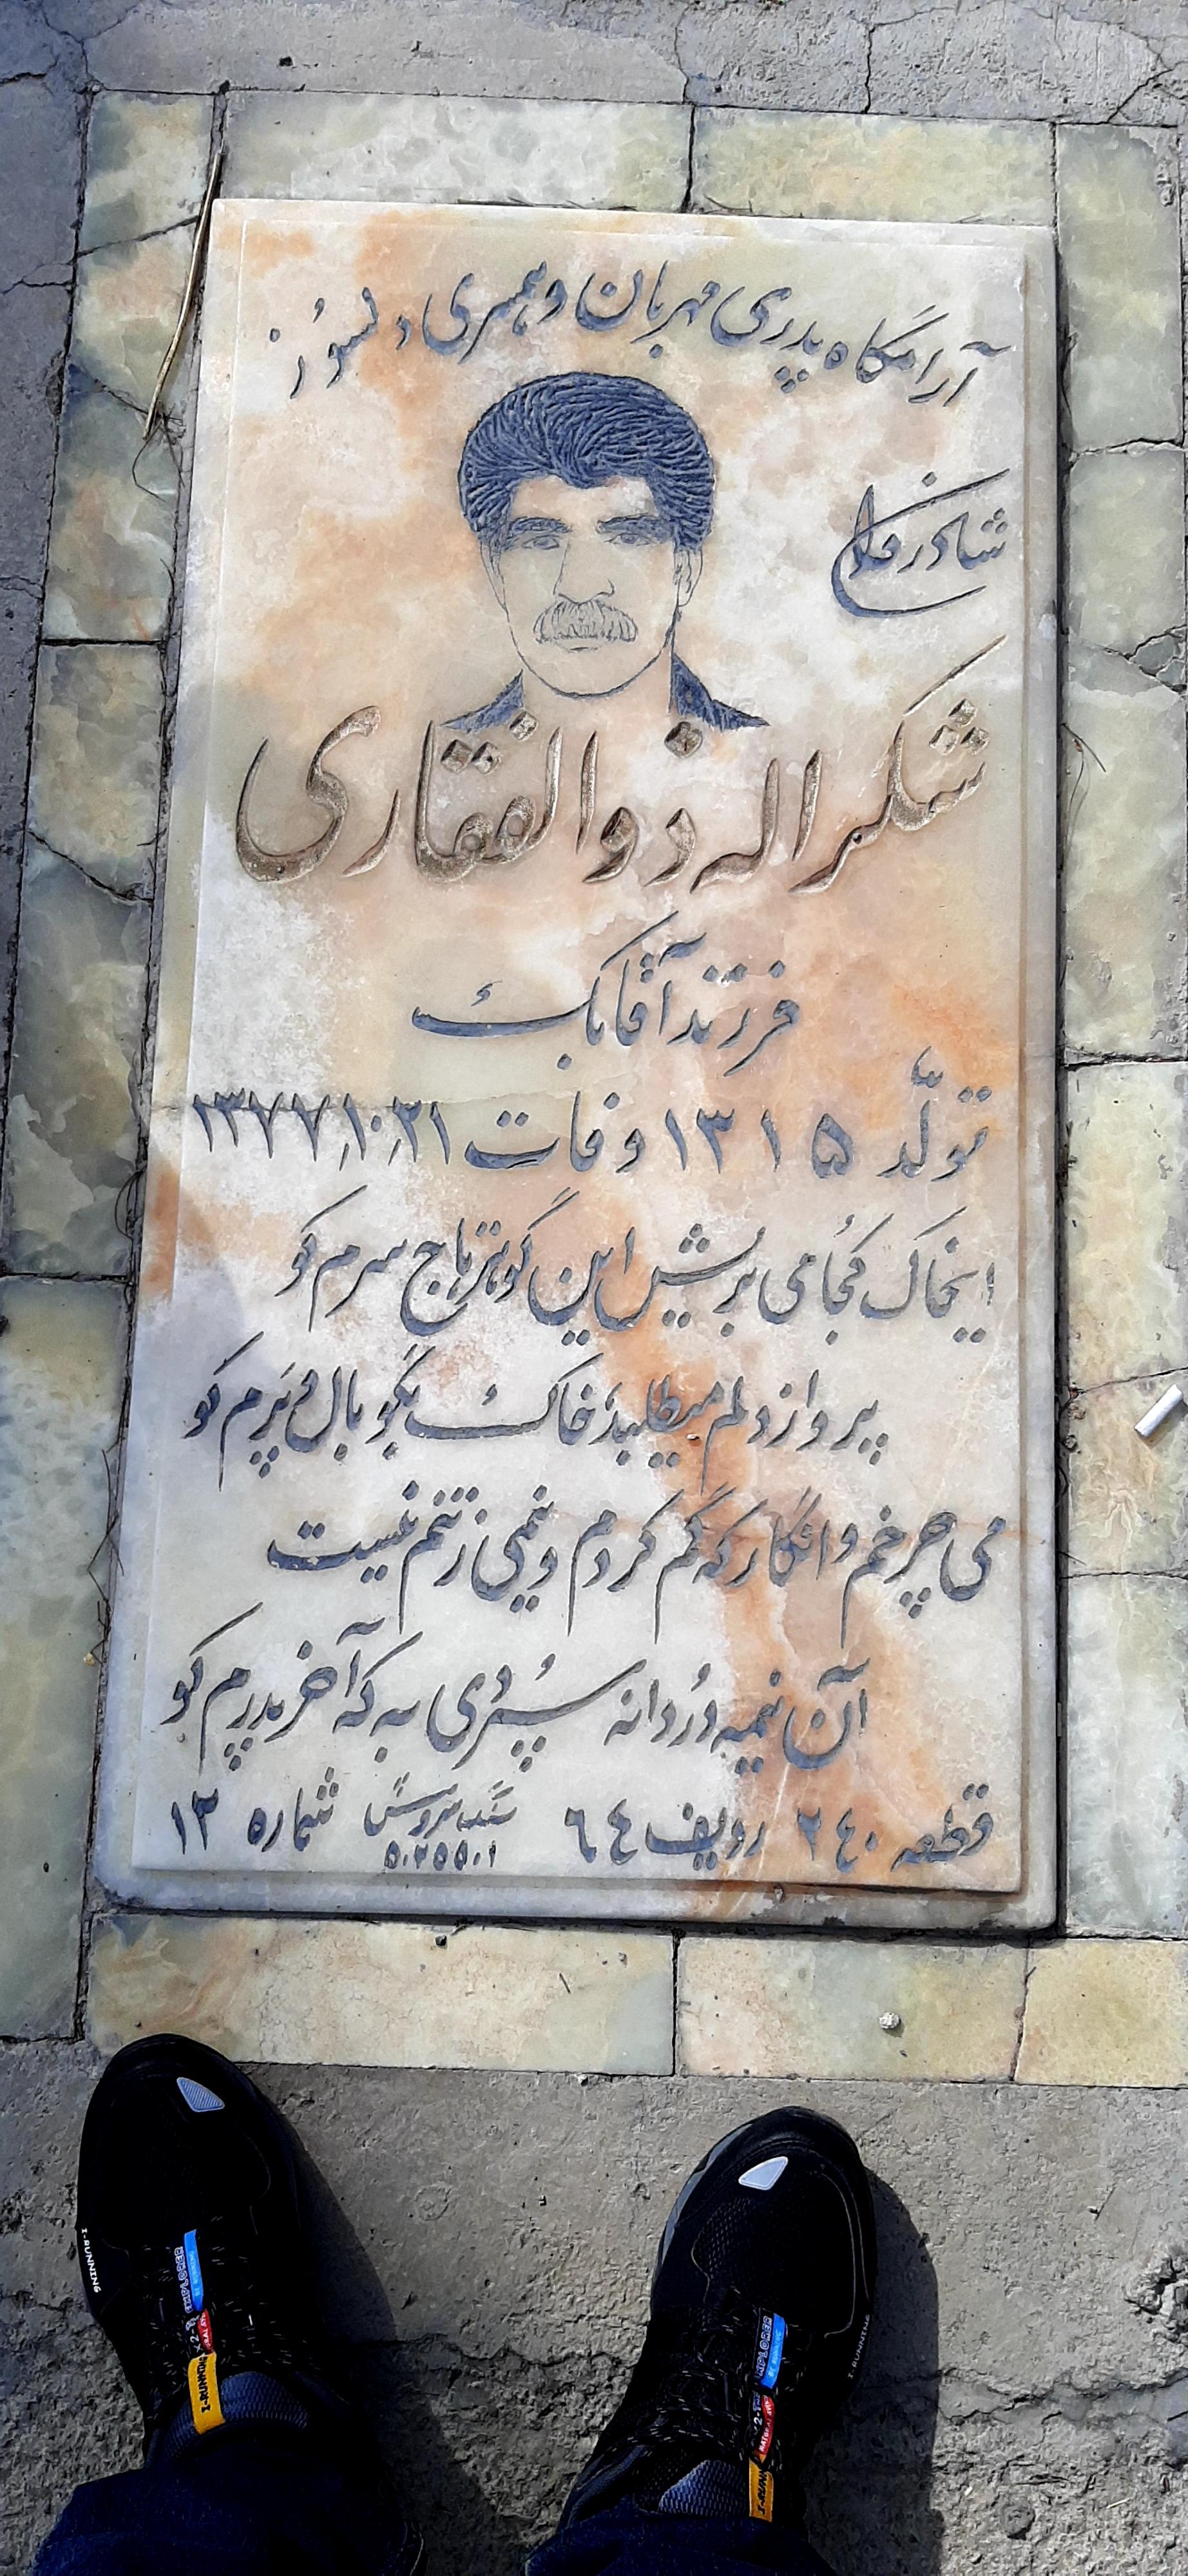 آرامگاه پدری مهربان و همسری دلسوز
شادروان
شکراله ذوالفقاری
فرزند آقابابک
تولّد ۱۳۱۵ وفات ۱۳۷۷٫۱۰٫۲۱
ایخاک کجا می بریش این گوهر تاج سرم کو
پرواز دلم میطلبد خاک بگو بال و پرم کو
می چرخم و انگار که گم کردم و نیمی ز تنم نیست
آن نیمه دردانه سپردی به که آخر پدرم کو
قطعه ۲٤۰ ردیف ٦٤ شماره ۱۳
سنگ سروش
۵۰۲۵۵۰۱
I-RUNNING
EXPLORER
I-RUNNING
I-RUNNING
EXPLORER